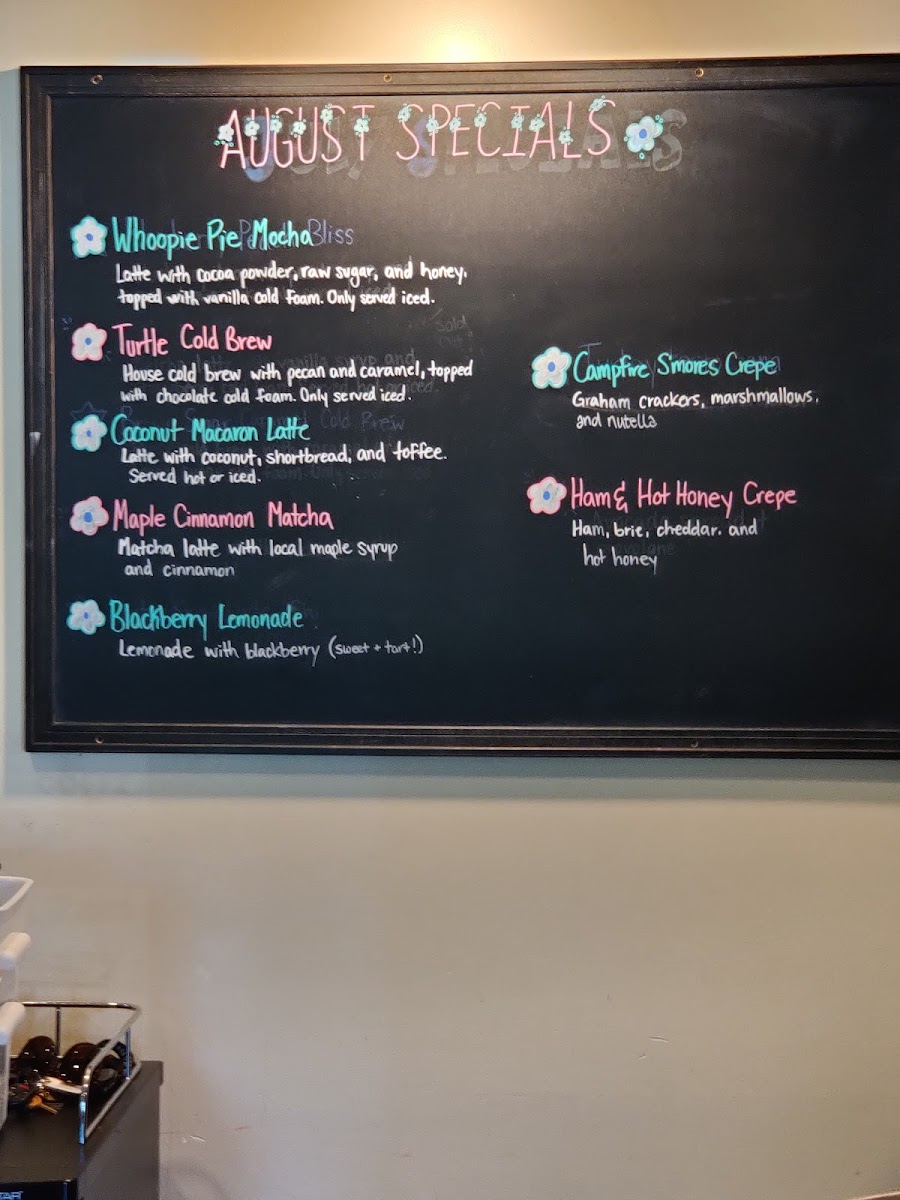 AUGUST SPECIALS
Whoopie Pie Mocha
Latte with cocoa powder, raw sugar, and honey.
topped with vanilla cold foam. Only served iced.
Turtle Cold Brew
House cold brew with pecan and caramel, topped
with chocolate cold foam. Only served iced.
Coconut Macaron Latte
Latte with coconut, shortbread, and toffee.
Served hot or iced.
Maple Cinnamon Matcha
Matcha latte with local maple syrup
and cinnamon
Blackberry Lemonade
Lemonade with blackberry (sweet + tart!)
Campfire S'mores Crepe
Graham crackers, marshmallows,
and nutella
Ham & Hot Honey Crepe
Ham, brie, cheddar. and
hot honey